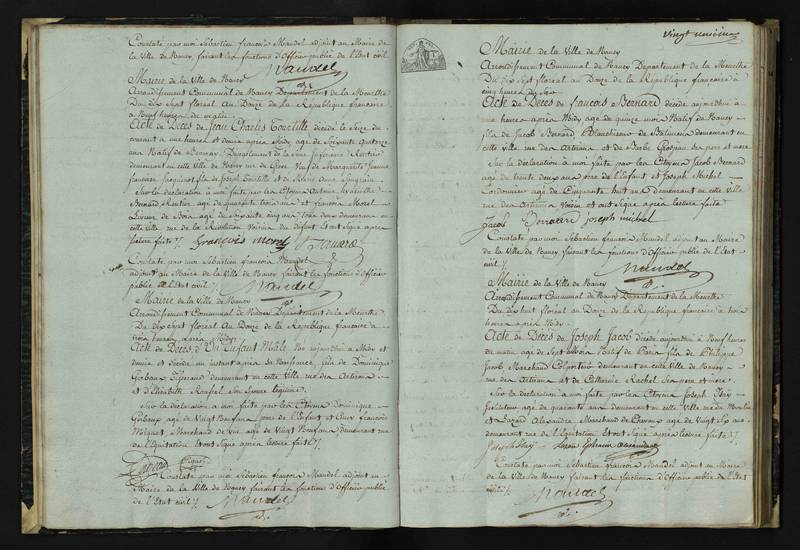 Constaté par moi Sébastien françois Mandel adjoint au Maire de
la Ville de Nancy, faisant les fonctions d'Officier public de l'Etat civil
Mandel
Mairie de la Ville de Nancy
Arrondissement Communal de Nancy Département de la Meurthe
Du dix Sept floreal an Douze de la République francaise
à Neuf heures du matin
Acte de Décès de Jean Charles décédé le seize du
courant à une heure et demie après Midy agé de Soixante quatorze
ans Natif de Département de la Seine Inférieure Rentier
demeurant en cette Ville de Nancy rue de Veuf de Marguerite Jeanne
fils de Joseph et de
Sur la déclaration à moi faite par les Citoyens Antoine
Bernard Rentier agé de quarante trois ans et françois Morel
de Bois agé de soixante cinq ans tous deux demeurans en cette
Ville rue de la Révolution Voisins du défunt et ont Signé après
lecture faite /.
François Morel
Constaté par moi Sébastien françois Mandel
adjoint au Maire de la Ville de Nancy faisant les fonctions d'Officier
public de l'Etat civil /.
Mandel
Mairie de la Ville de Nancy
Arrondissement Communal de Nancy Département de la Meurthe
Du dix Sept floreal an Douze de la République francaise à
trois heures après Midy
Acte de Décès, d'Un Enfant Mâle né aujourd'hui à Midy et
demie et décédé un instant après sa Naissance, fils de Dominique
Tisserand demeurant en cette Ville rue des Artisans
et d'Elisabeth son Epouse légitime
Sur la déclaration à moi faite par les Citoyens Dominique
agé de Vingt Neuf ans père de l'Enfant et françois
Marchand de Vin agé de Vingt Neuf ans, demeurant rue
de l'Equitation et ont Signé après lecture faite /.
Constaté par moi Sébastien françois Mandel adjoint au
Maire de la Ville de Nancy faisant les fonctions d'Officier public
de l'Etat civil /.
Mandel
Vingt unième
Mairie de la Ville de Nancy
Arrondissement Communal de Nancy Département de la Meurthe
Du dix Sept floreal an Douze de la République française à
cinq heures du Soir
Acte de Décès de françois Bernard décédé aujourd'hui à
une heure après Midy agé de quinze mois Natif de Nancy
fils de Jacob Bernard de Batiments demeurant en
cette Ville rue des Artisans et de Barbe ses père et mère
Sur la déclaration à moi faite par les Citoyens Jacob Bernard
agé de trente deux ans père de l'Enfant et Joseph Michel
Cordonnier agé de Cinquante huit ans demeurant en cette Ville
rue des Artisans Voisin et ont Signé après lecture faite
Jacob joseph michel
Constaté par moi Sébastien françois Mandel adjoint au Maire
de la Ville de Nancy faisant les fonctions d'Officier public de l'Etat
civil /.
Mandel
Mairie de la Ville de Nancy
Arrondissement Communal de Nancy Département de la Meurthe
Du dix huit floreal an Douze de la République française à trois
heures après Midy
Acte de Décès de Joseph Jacob décédé aujourd'hui à Neuf heures
du matin agé de Sept mois Natif de Paris fils de Philippe
Jacob Marchand Colporteur demeurant en cette Ville de Nancy
rue des Artisans et de Catherine Rachel Ses père et mère.
Sur la déclaration à moi faite par les Citoyens Joseph
Instituteur agé de quarante ans demeurant en cette Ville rue du Moulin
et Lazard Alexandre Marchand de Chevaux agé de Vingt Six ans
demeurant rue de l'Equitation et ont Signé après lecture faite /.
Constaté par moi Sébastien françois Mandel adjoint au Maire
de la Ville de Nancy faisant les fonctions d'Officier public de l'Etat
civil /.
Mandel